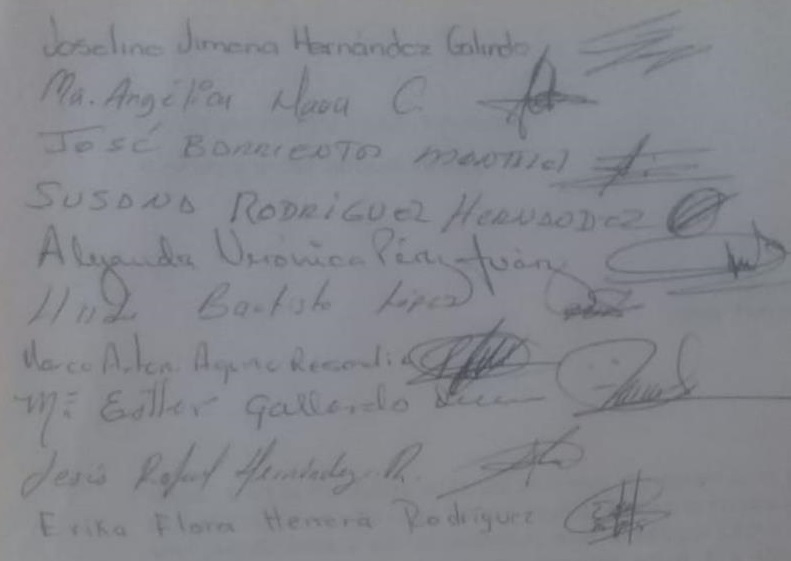 Joseline Jimena Hernández Galindo
Ma. Angélica Nava C.
José Barrientos
SUSANA RODRIGUEZ HERNANDEZ
Alejandra Verónica Pérez Juárez
Bautista López
Marco Anton. Aquino
Mª Esther Gallardo
Jesús Rafael Hernández R.
Erika Flora Herrera Rodríguez